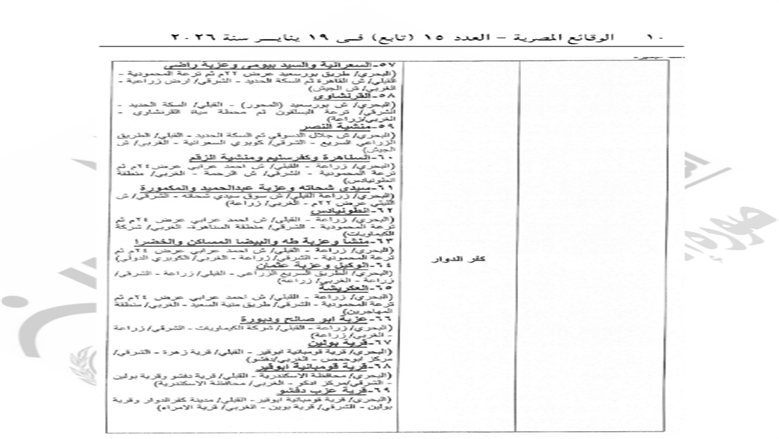 ١٠ الوقائع المصرية – العدد ١٥ (تابع) فى ١٩ يناير سنة ٢٠٢٦
٥٧-السعرانية والسيد بيومى وعزبة راضي
(البحري/ طريق بورسعيد عرض ٢٢م ثم ترعة المحمودية -
القبلي/ ش القاهرة ثم السكة الحديد - الشرقي/ ارض زراعية -
الغربي/ ش الجيش)
٥٨-القرنشاوي
(البحري/ ش بورسعيد (المحور) - القبلي/ السكة الحديد -
الشرقي/ ترعة البسلقون ثم محطة مياة القرنشاوي -
الغربي/زراعة)
٥٩-منشية النصر
(البحري/ ش جلال الدسوقي ثم السكة الحديد - القبلي/ الطريق
الزراعي السريع - الشرقي/ كوبري السعرانية - الغربي/ ش
الجيش)
٦٠-السناهرة وكفرسليم ومنشية الزقم
(البحري/ زراعة - القبلي/ ش احمد عرابي عرض ٢٤م ثم
ترعة المحمودية - الشرقي/ ش الرحمة - الغربي/ منطقة
انطونيادس)
٦١-سيدي شحاته وعزبة عبدالحميد والمكمورة
(البحري/ زراعة القبلي/ ش سوق سيدي شحاته - الشرقي/ ش
الليثي عرض ٢٢م - الغربي/ زراعة)
٦٢-انطونيادس
(البحري/ زراعة - القبلي/ ش احمد عرابي عرض ٢٤م ثم
ترعة المحمودية - الشرقي/ منطقة السناهرة- الغربي/ شركة
الكيماويات)
٦٣-منشا وعزبة طه والبيضا المساكن والخضرا
(البحري/ زراعة - القبلي/ ش احمد عرابي عرض ٢٤م ثم
ترعة المحمودية - الشرقي/ زراعة - الغربي/ الكوبري الدولي)
٦٤-الوكيل وعزبة عثمان
(البحري/ الطريق السريع الزراعي - القبلي/ زراعة - الشرقي/
زراعة - الغربي/ زراعة)
٦٥-العكريشة
(البحري/ زراعة - القبلي/ ش احمد عرابي عرض ٢٤م ثم
ترعة المحمودية - الشرقي/ طريق منية السعيد - الغربي/ منطقة
المهاجرين)
٦٦-عزبة ابو صالح ودبورة
(البحري/ زراعة - القبلي/ شركة الكيماويات - الشرقي/ زراعة
- الغربي/ زراعة)
٦٧-قرية بولين
(البحري/ قرية قومبانية ابوقير - القبلي/ قرية زهرة - الشرقي/
مركز ابوحمص - الغربي/دفشو)
٦٨-قرية قومبانية ابوقير
(البحري/ محافظة الاسكندرية - القبلي/ قرية دفشو وقرية بولين
- الشرقي/مركز ادكو - الغربي/ محافظة الاسكندرية)
٦٩-قرية عزب دفشو
(البحري/ قرية قومبانية ابوقير - القبلي/ مدينة كفرالدوار وقرية
بولين - الشرقي/ قرية بوين - الغربي/ قرية الامراء)
كفر الدوار